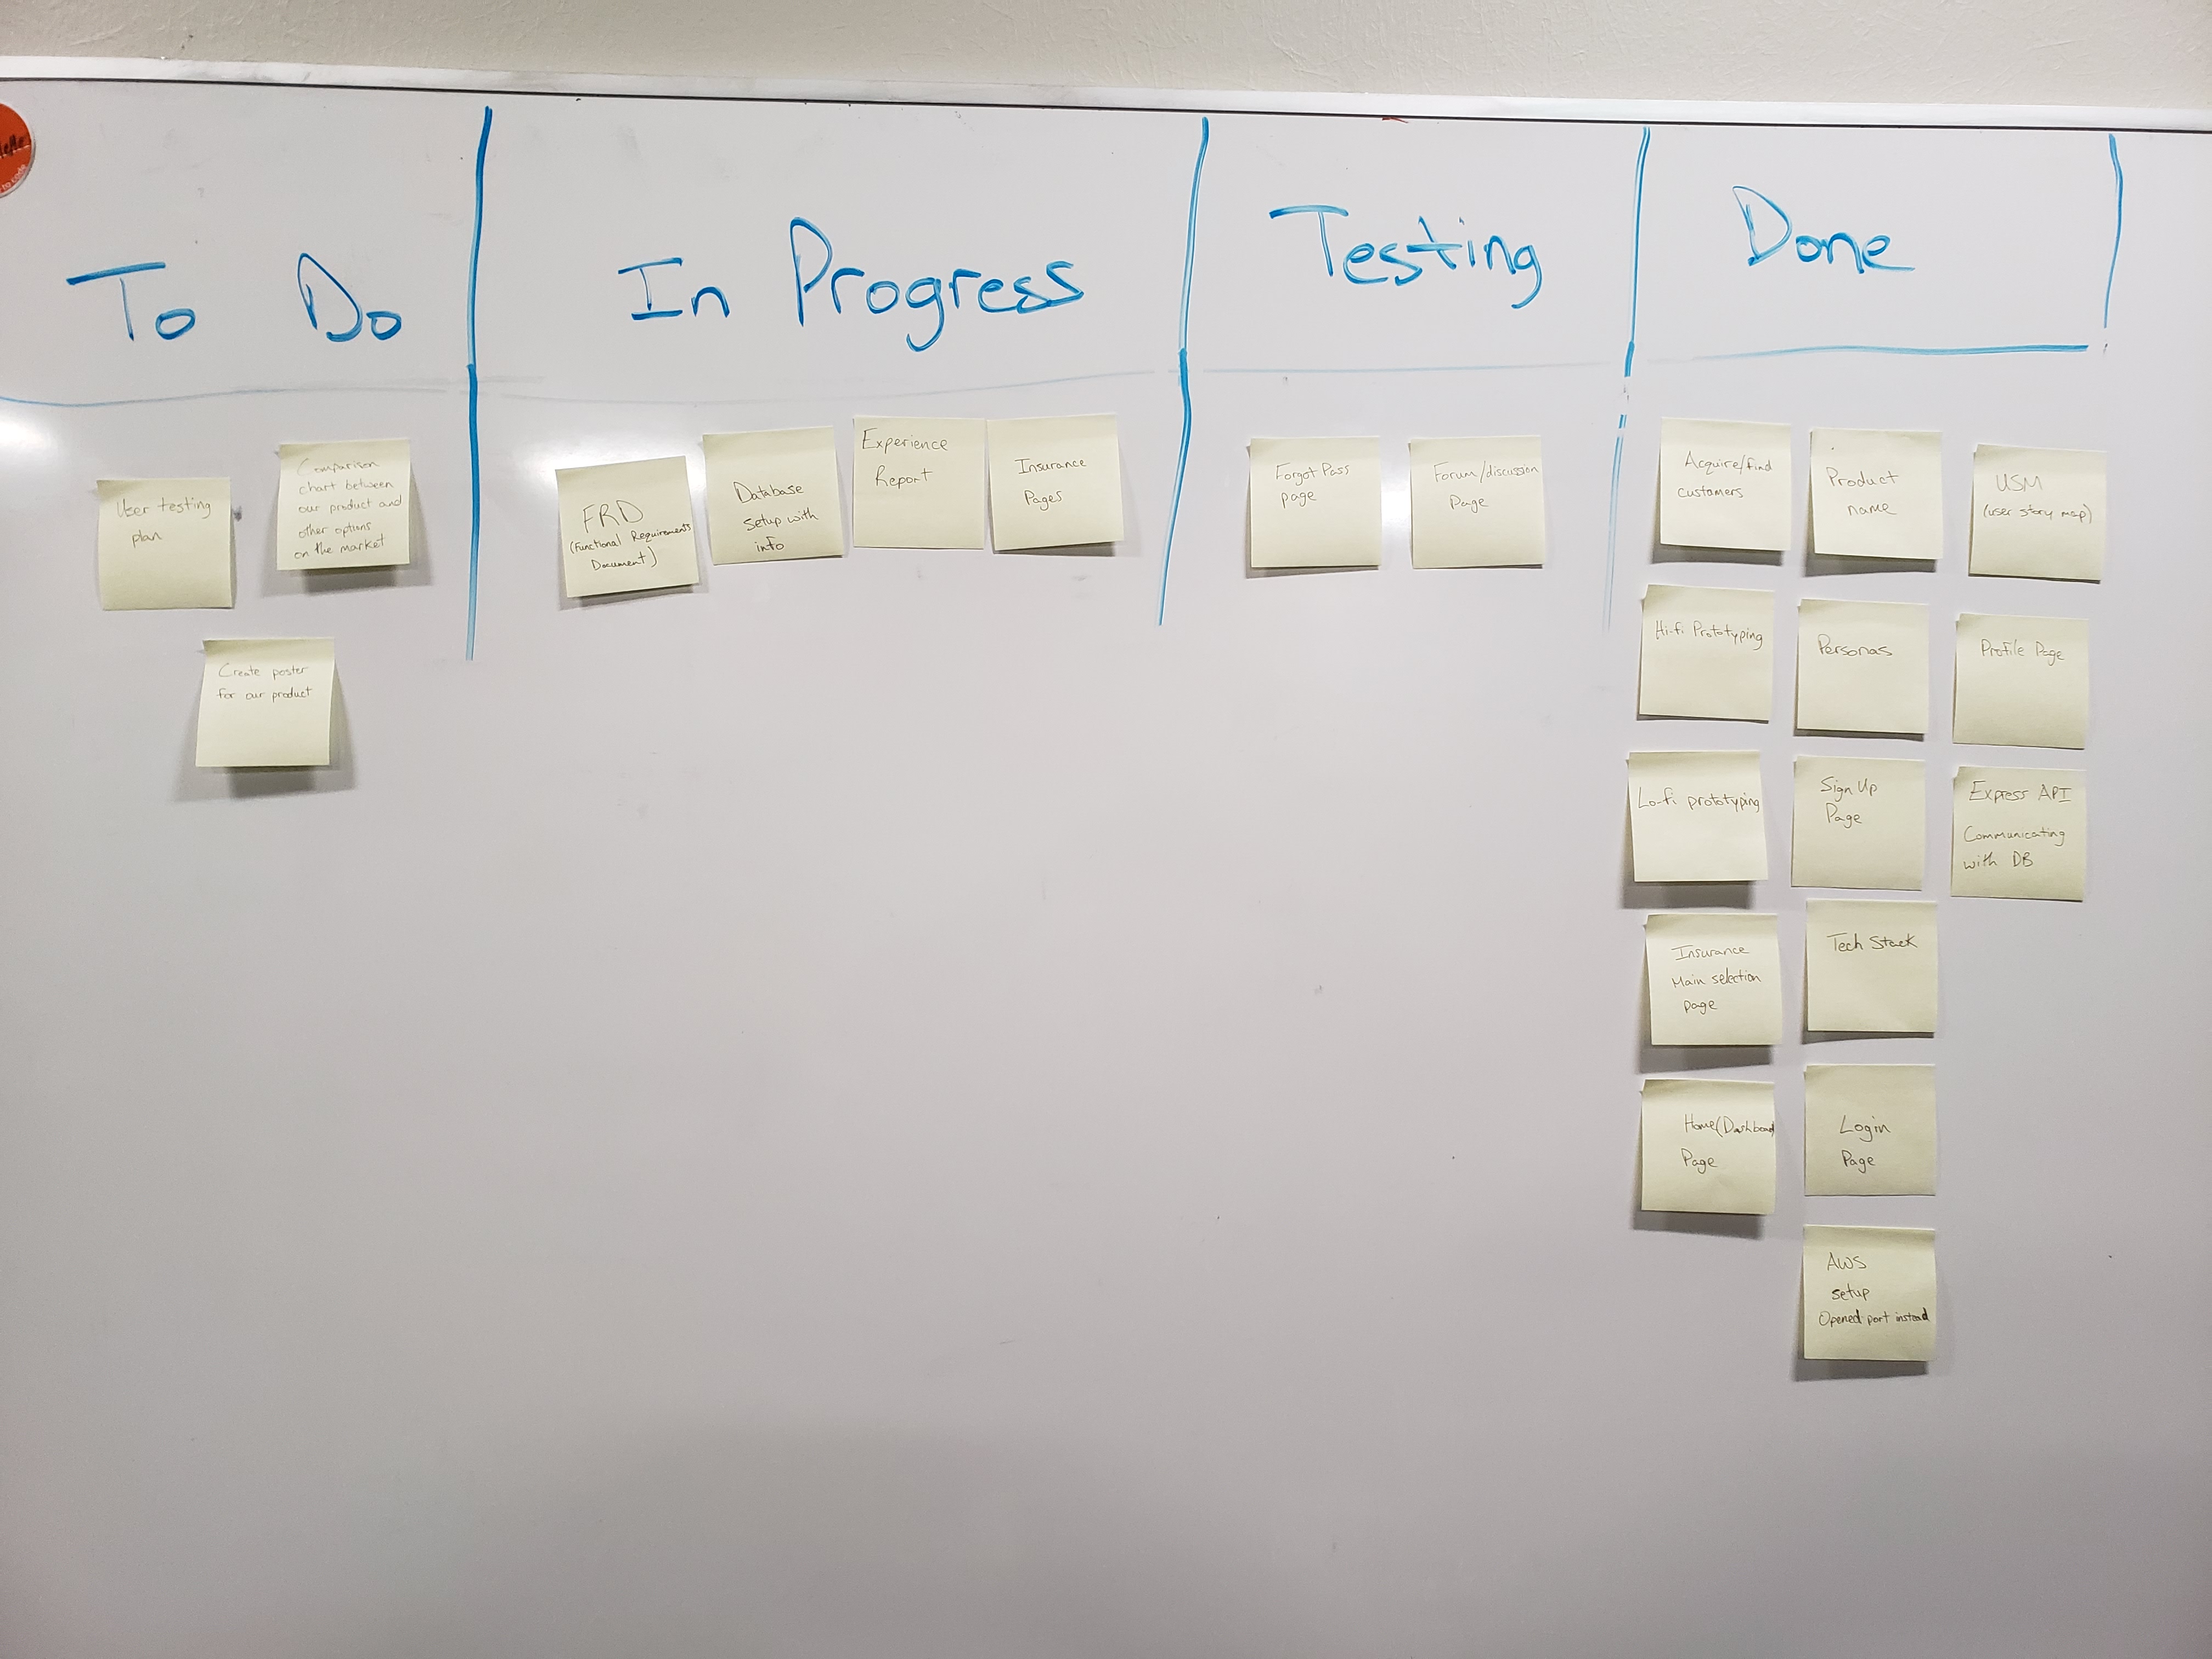 To Do
In Progress
Testing
Done
User testing
plan
Comparison
chart between
our product and
other options
on the market
Create poster
for our product
FRD
(Functional Requirements
Document)
Database
setup with
info
Experience
Report
Insurance
Pages
Forgot Pass
page
Forum/discussion
Page
Acquire/find
customers
Product
name
USM
(user story map)
Hi-fi Prototyping
Personas
Profile Page
Lo-fi prototyping
Sign Up
Page
Express API
Communicating
with DB
Insurance
Main selection
page
Tech Stack
Home(Dashboard
Page
Login
Page
AWS
setup
Opened port instead
to code